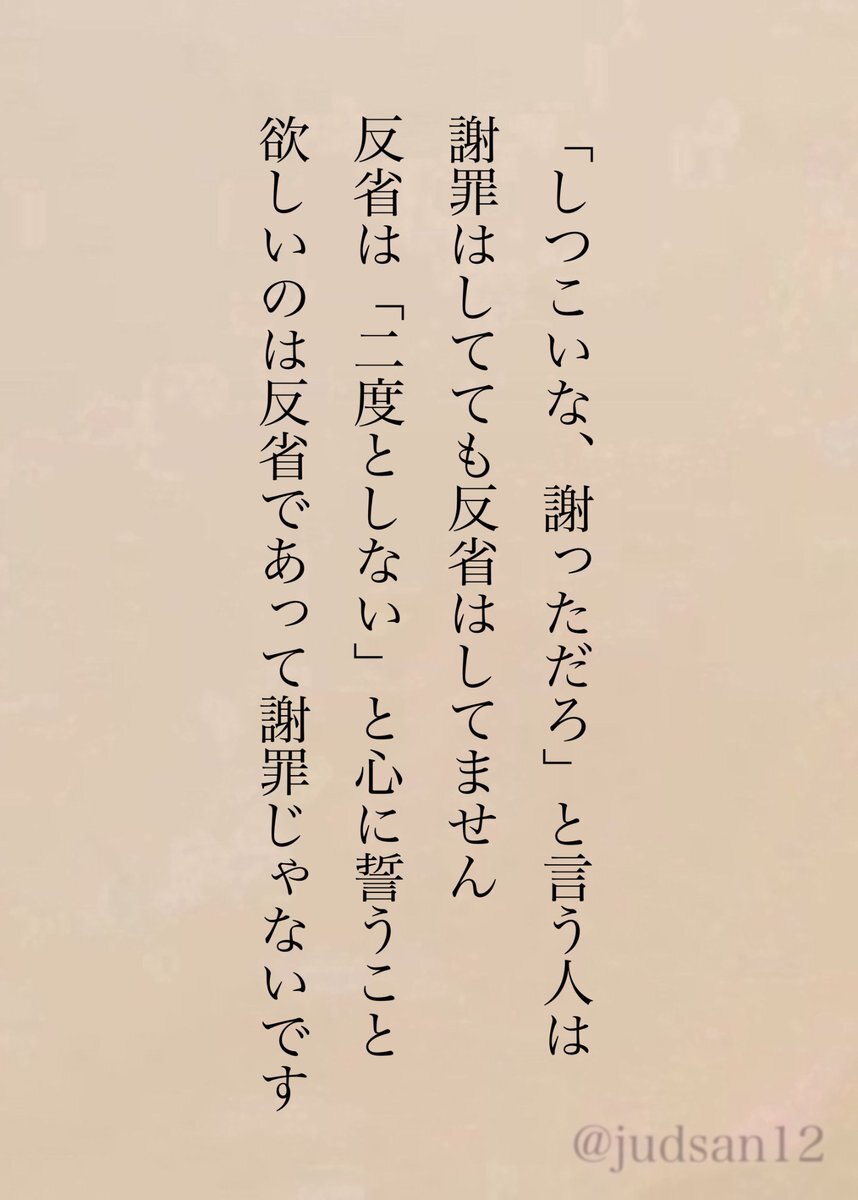 「しつこいな、謝っただろ」と言う人は
謝罪はしてても反省はしてません
反省は「二度としない」と心に誓うこと
欲しいのは反省であって謝罪じゃないです
@judsan12